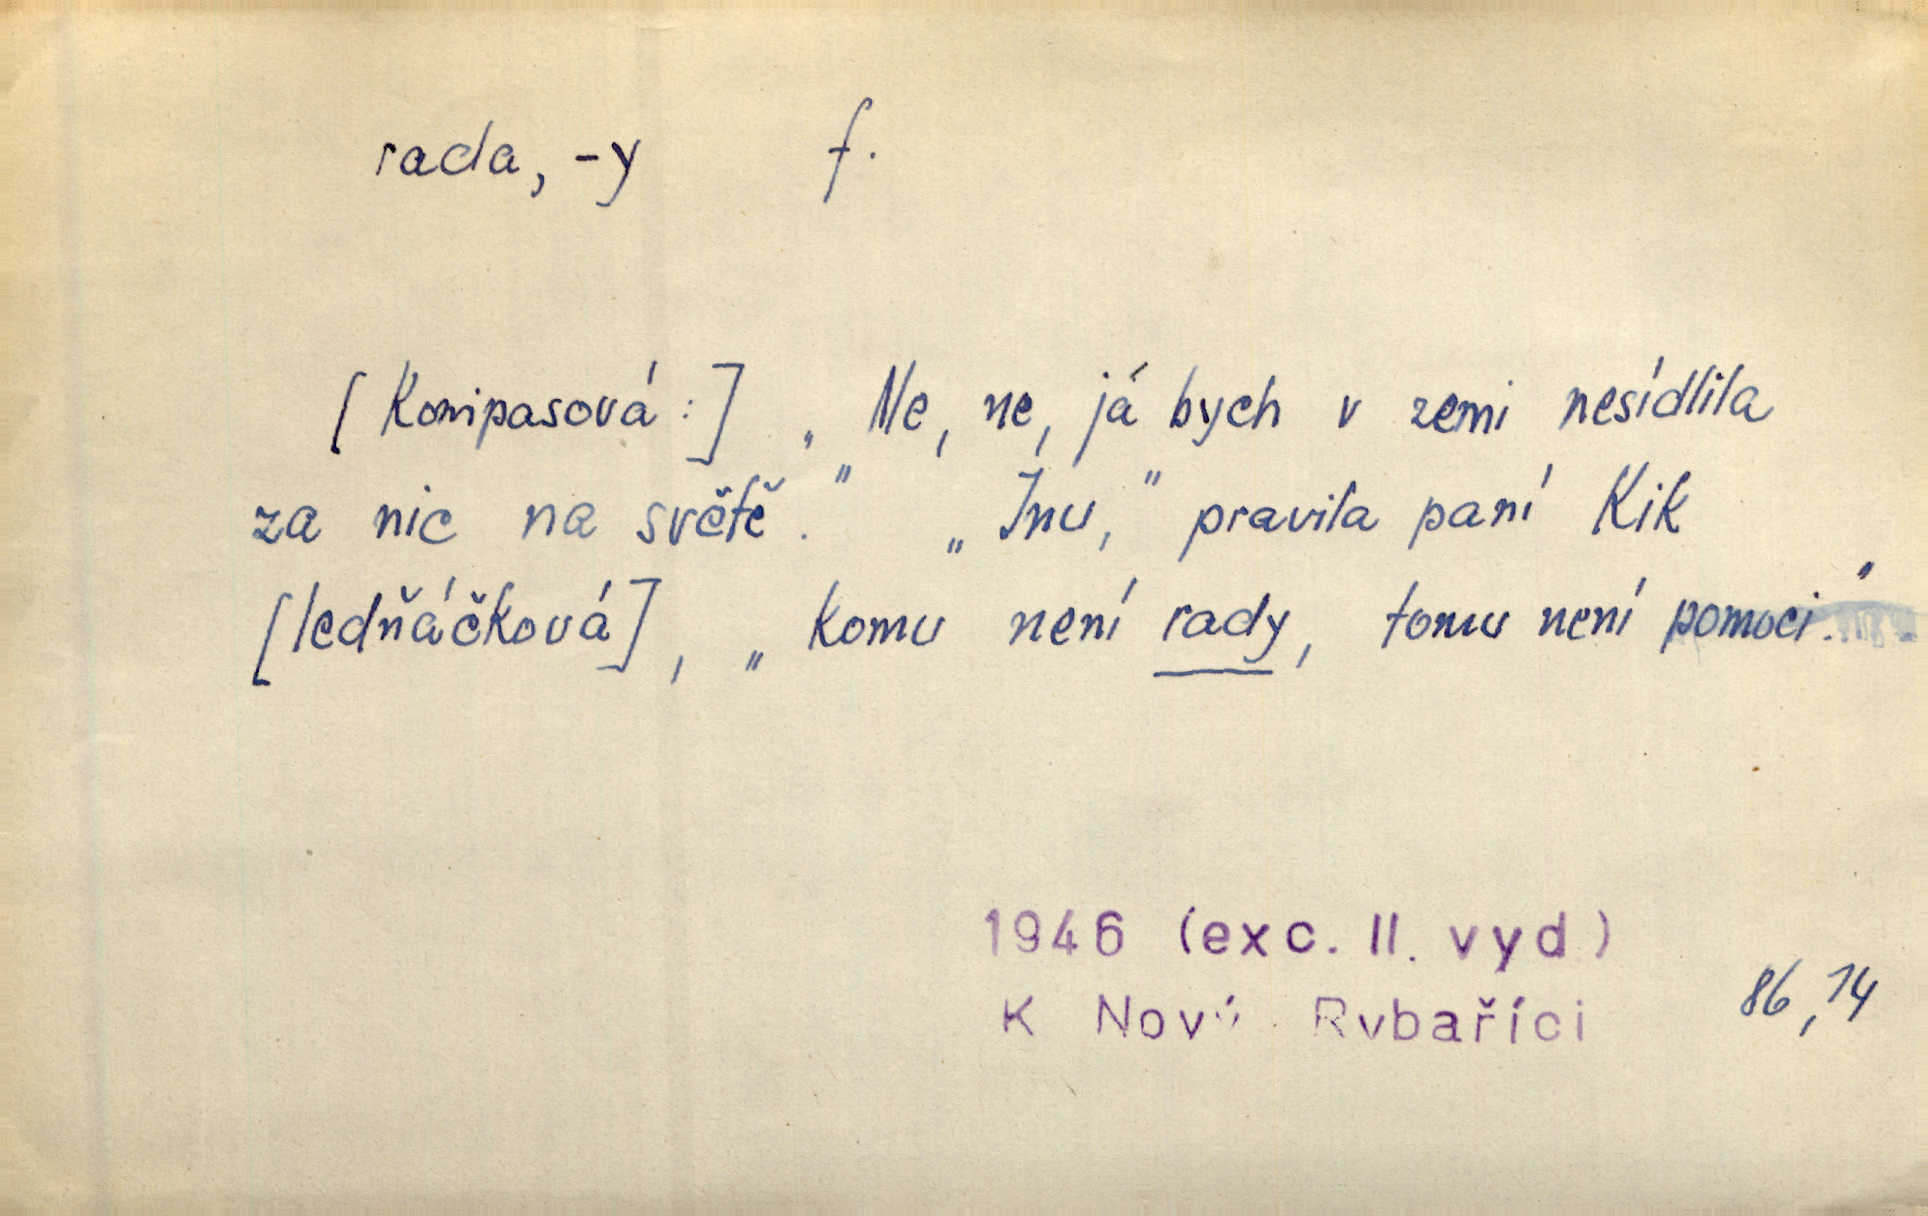 rada, -y f.
[Konipasová:] „Ne, ne, já bych v zemi nesídlila
za nic na světě." „Inu," pravila paní Kik
[ledňáčková], „komu není rady, tomu není pomoci."
1946 (exc. II. vyd)
K Nový Rybaříci
86,14